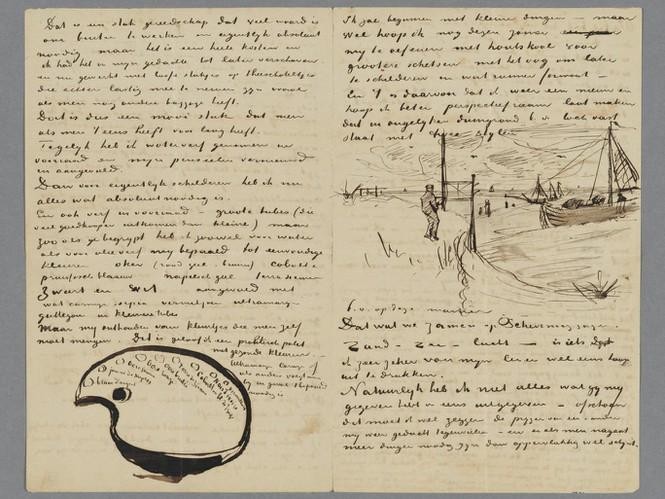 Dat is een stuk gereedschap dat veel waard is
om buiten te werken en eigentlijk absoluut
noodig maar het is een heele kosten en
ik had het in mijn gedachte tot later verschoven
en nu gewerkt met losse stukjes op
die echter lastig mee te nemen zijn vooral
als men nog andere baggage heeft.
Doch is dus een mooi stuk dat men
als men 't eens heeft voor lang heeft.
Tegelijk heb ik waterverf genomen en
voorraad en mijn penseelen vernieuwd
en aangevuld.
Dan voor eigentlijk schilderen heb ik nu
alles wat absoluut noodig is.
En ook verf in voorraad – groote tubes (die
veel goedkooper uitkomen dan kleine) maar
zooals ge begrijpt heb ik zoowel voor water
als voor olieverf mij bepaald tot eenvoudige
kleuren oker (rood geel bruin) cobalt &
pruissisch blaauw napelsch geel terra sienna
Zwart en Wit aangevuld met
wat carmijn sepia vermiljoen ultramarijn
guttegom in kleine tubes.
Maar mij onthouden van kleurtjes die men zelf
moet mengen. Dit is geloof ik een praktisch palet
met gezonde kleuren.
Ultramarijn Carmijn of
als anders voegt
bij in geval streng
noodig is
Ik zal beginnen met kleine dingen – maar
wel hoop ik nog dezen zomer
mij te oefenen met houtskool voor
grootere schetsen met het oog om later
te schilderen in wat ruimer formaat –
En 't is daarvan dat ik weer een nieuw en
hoop ik beter perspectiefraam laat maken
dat in ongelijke duingrond b.v. ook vast
staat met twee stijlen
b.v. op deze manier
Dat wat we zamen op Schevening zagen.
Zand – Zee – Lucht – is iets dat
ik zeer zeker van mijn leven wel eens hoop
uit te drukken.
Natuurlijk heb ik niet alles wat gij mij
gegeven hebt in eens uitgegeven – ofschoon
dit moet ik wel zeggen de prijzen van een & ander
mij weer geducht tegenvielen – en er als men nagaat
meer dingen noodig zijn dan oppervlakkig wel schijnt.